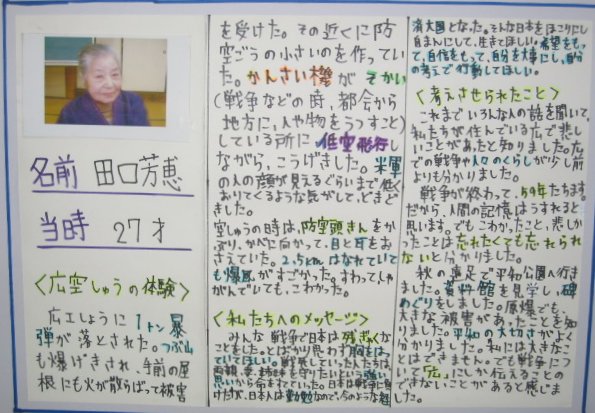 名前 田口芳恵
当時 27才
<広空しゅうの体験>
広工しょうに1トン爆
弾が落とされた。つぶ山
も爆げきされ、手前の屋
根にも火が散らばって被害
を受けた。その近くに防
空ごうの小さいのを作ってい
た。かんさい機がそかい
(戦争などの時、都会から
地方に、人や物をうつすこと)
している所に、低空飛行し
ながら、こうげきした。米軍
の人の顔が見えるぐらいまで低く
おりてくるような気がして、どきど
きした。
空しゅうの時は、防空頭きんをか
ぶり、かべに向かって、目と耳をお
さえていた。2.5kmはなれていて
も爆風がすごかった。すわってしゃ
がんでいても、こわかった。
<私たちへのメッセージ>
みんな戦争で日本は残ぎゃくな
ことをした。とばかり思わず胸をはっ
てけほしい。戦死していった人たちは、
両親、妻、姉妹を守りたいという強い
思いから命をすてていった。日本は戦争に
負けたが、日本人は勤勉なので、今のような経
済大国となった。そんな日本をほこりにし
自まんにして、生きてほしい。希望をもっ
て、自信をもって、自分を大事にし、自分
の考えで行動してほしい。
<考えさせられたこと>
これまでいろんな人の話を聞いて、
私たちが住んでいる広で悲し
いことがあったと知りました。広
での戦争や人々のくらしが少し前
よりも分かりました。
戦争が終わって、59年たちます。
だから、人間の記憶はうすれると
思います。でもこわかったこと、悲しか
ったことは忘れたくても忘れられ
ないと分かりました。
秋の遠足で平和公園へ行き
ました。資料館を見学し、碑
めぐりをしました。原爆でも、
大きな被害があったことを知
りました。平和の大切さがよく
分かりました。私には大きなこ
とはできません。でも戦争につ
いて「広」にしか伝えることの
できないことがあると感じま
した。